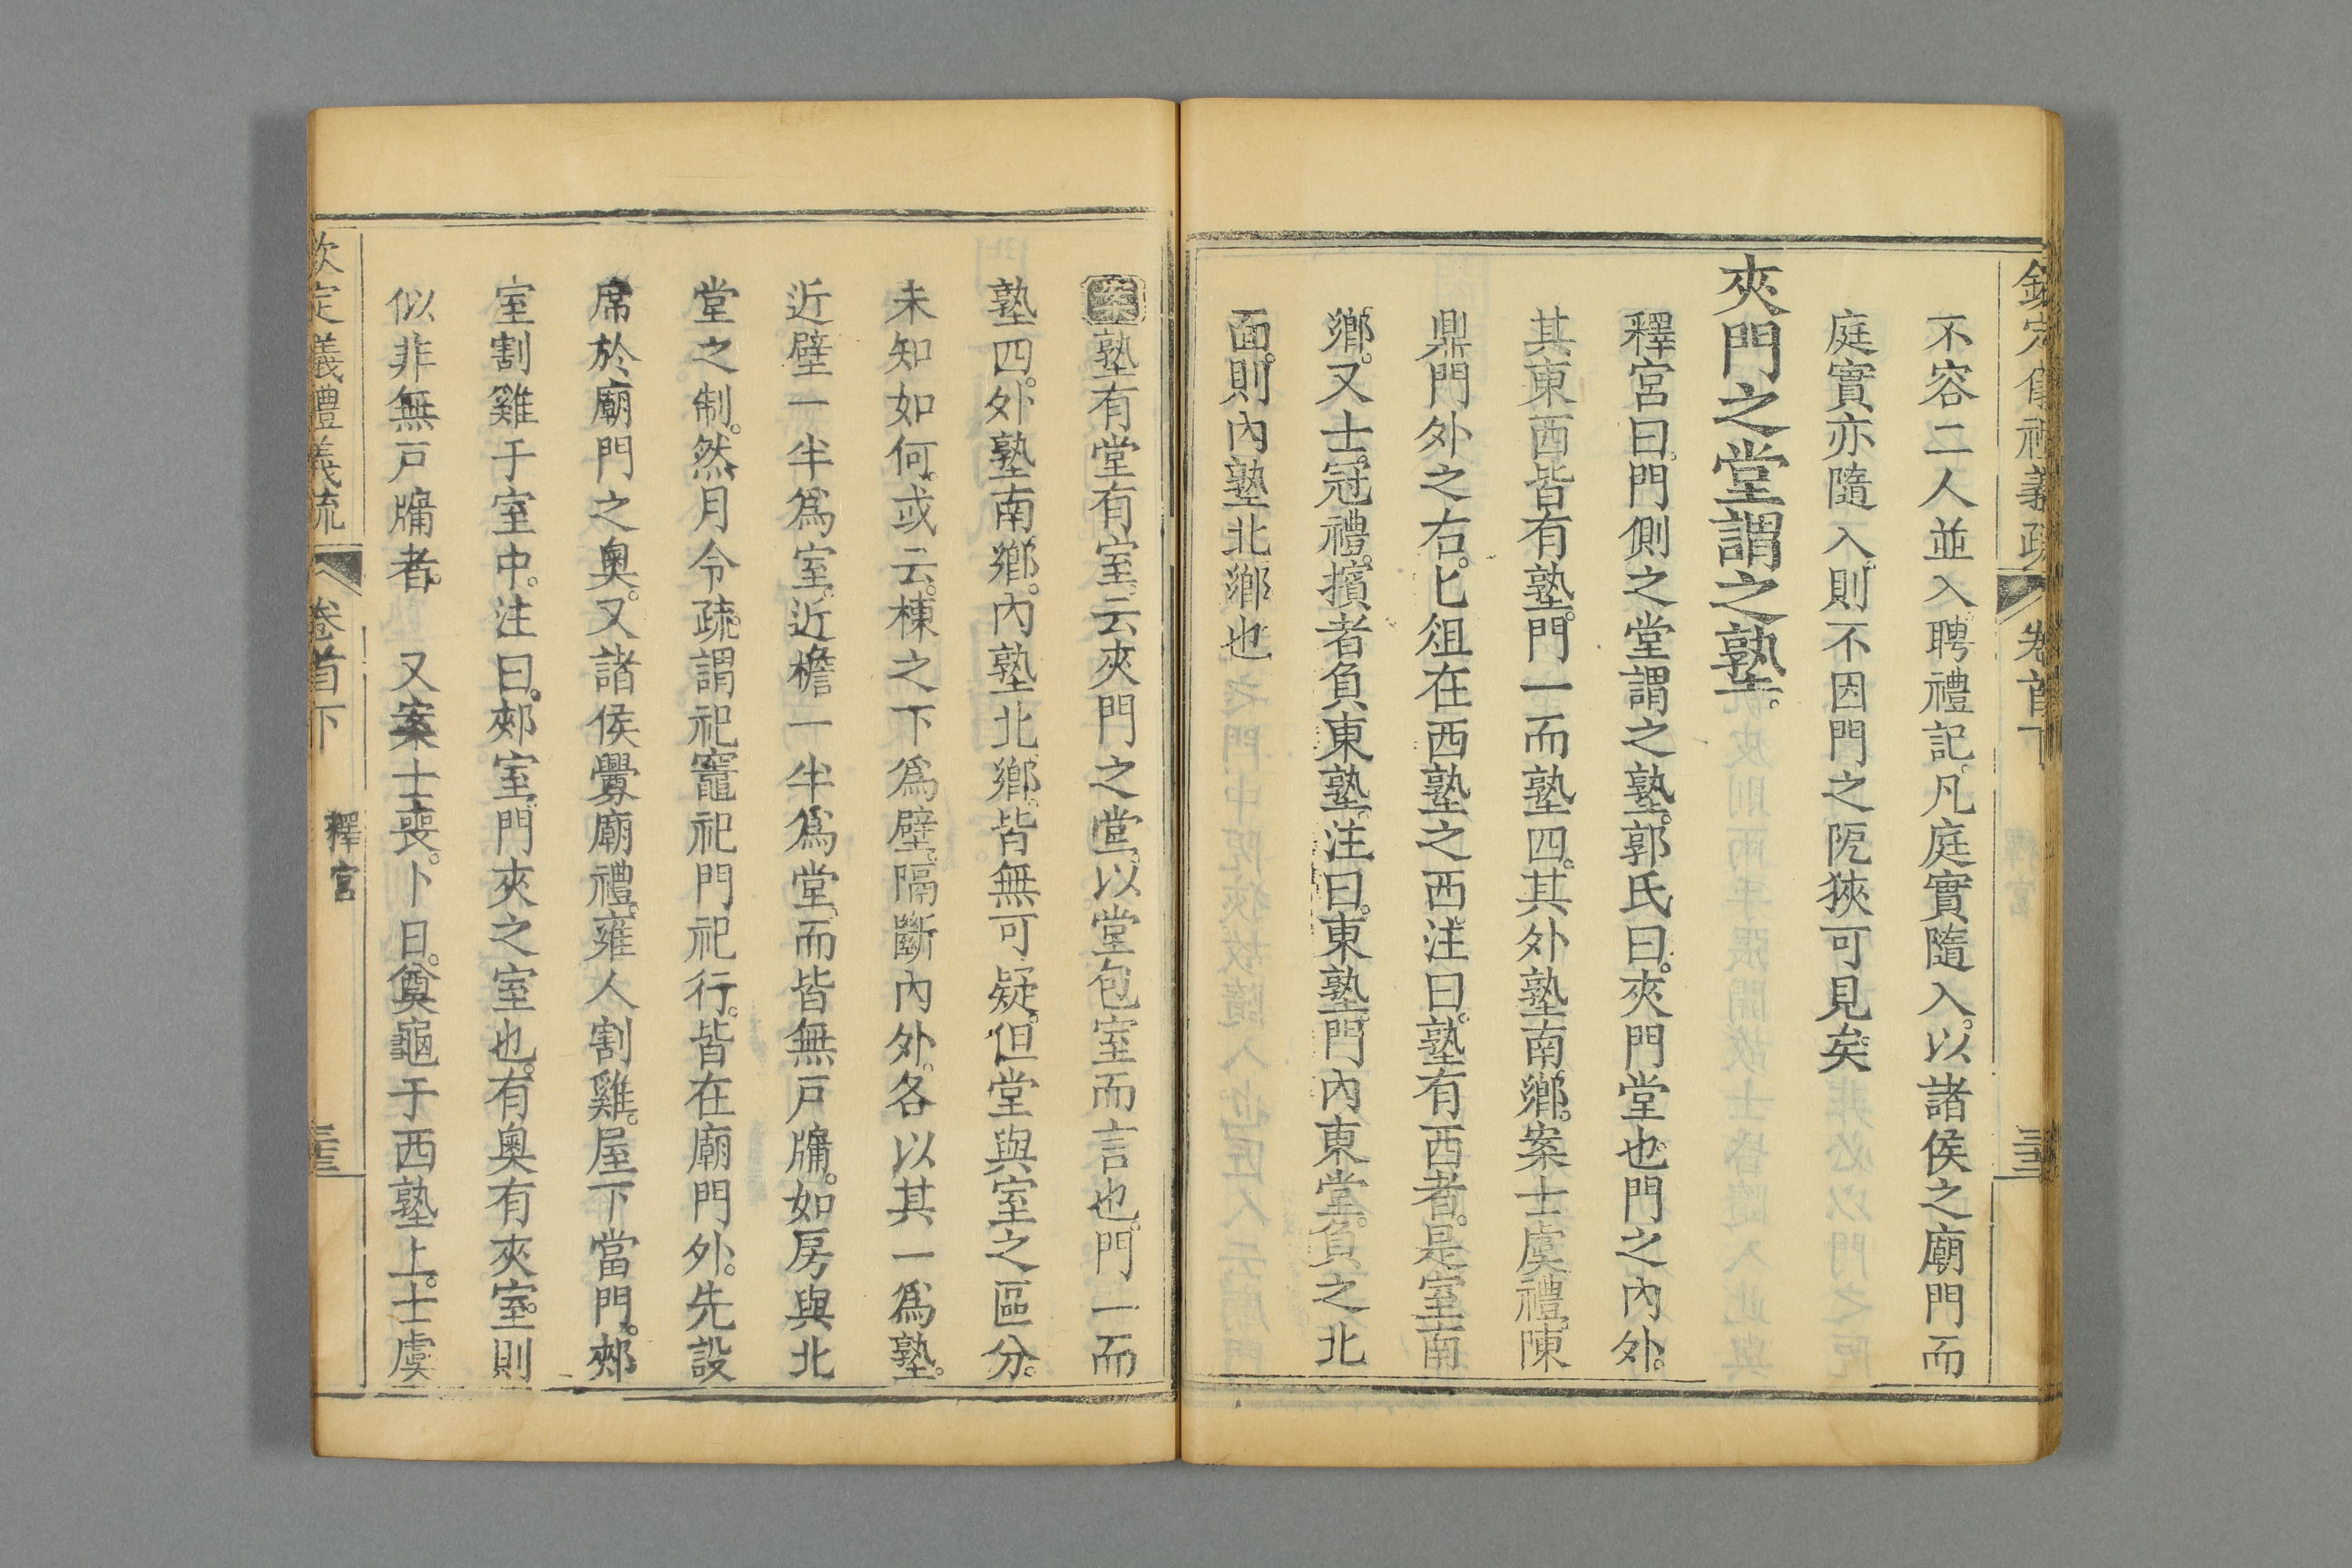 欽定儀禮義疏 卷首下 三十五
不容二人並入聘禮記凡庭實隨入以諸侯之廟門而
庭實亦隨入則不因門之阨狹可見矣
夾門之堂謂之塾
釋宮曰門側之堂謂之塾郭氏曰夾門堂也門之內外
其東西皆有塾門一而塾四其外塾南鄉案士虞禮陳
鼎門外之右匕俎在西塾之西注曰塾有西者是室南
鄉又士冠禮擯者負東塾注曰東塾門內東堂負之北
面則內塾北鄉也
案塾有堂有室云夾門之堂以堂包室而言也門一而
塾四外塾南鄉內塾北鄉皆無可疑但堂與室之區分
未知如何或云棟之下為壁隔斷內外各以其一為塾
近壁一半為室近檐一半為堂而皆無戶牖如房與北
堂之制然月令疏謂祀竈祀門祀行皆在廟門外先設
席於廟門之奧又諸侯釁廟禮雍人割雞屋下當門郟
室割雞于室中注曰郟室門夾之室也有奧有夾室則
似非無戶牖者 又案士喪卜日奠龜于西塾上士虞
欽定儀禮義疏 卷首下 釋宮 三十五